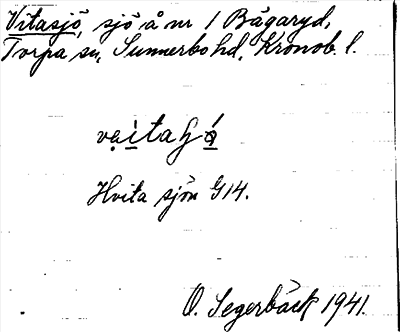 Vitasjö, sjö å nr 1 Bågaryd,
Torpa sn, Sunnerbo hd, Kronob. l.
Hvita sjön G14.
O. Segerbäck 1941.